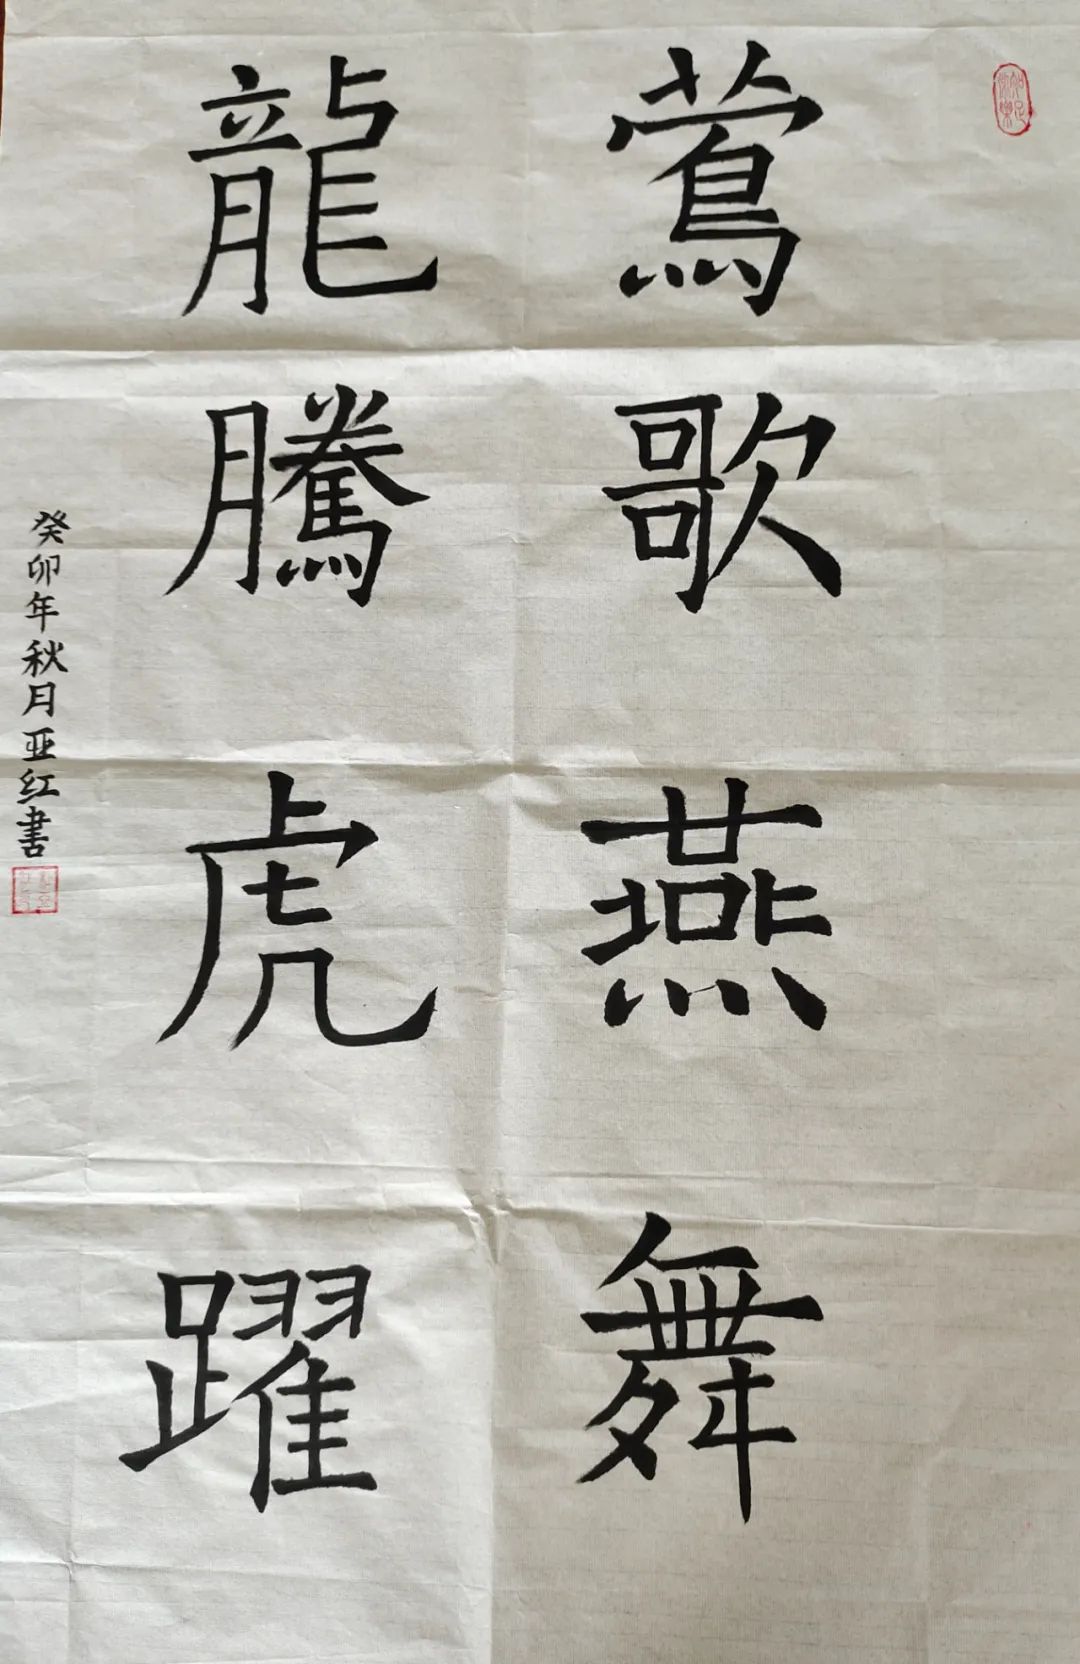 鶯歌燕舞
龍騰虎躍
癸卯年秋月亚红書
知足常樂